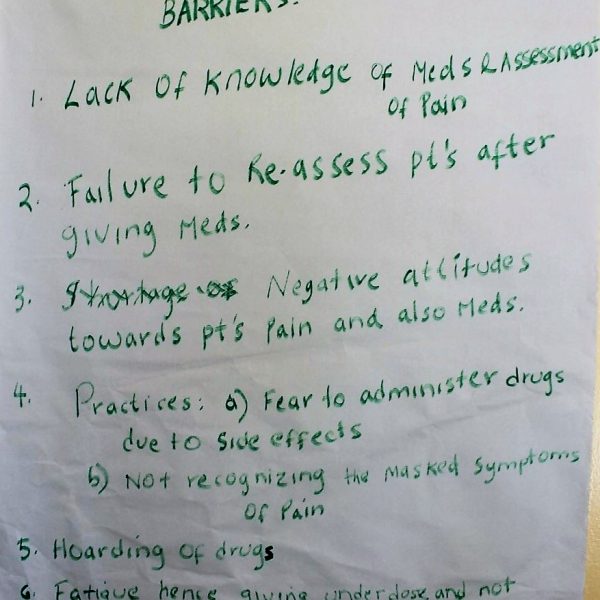 BARRIERS:
1. Lack of knowledge of Meds & Assessment
of Pain
2. Failure to Re-assess pt's after
giving Meds.
3. Shortage of Negative attitudes
towards pt's Pain and also Meds.
4. Practices: a) Fear to administer drugs
due to side effects
b) Not recognizing the masked symptoms
of Pain
5. Hoarding of drugs
6. Fatigue hence giving underdose and not